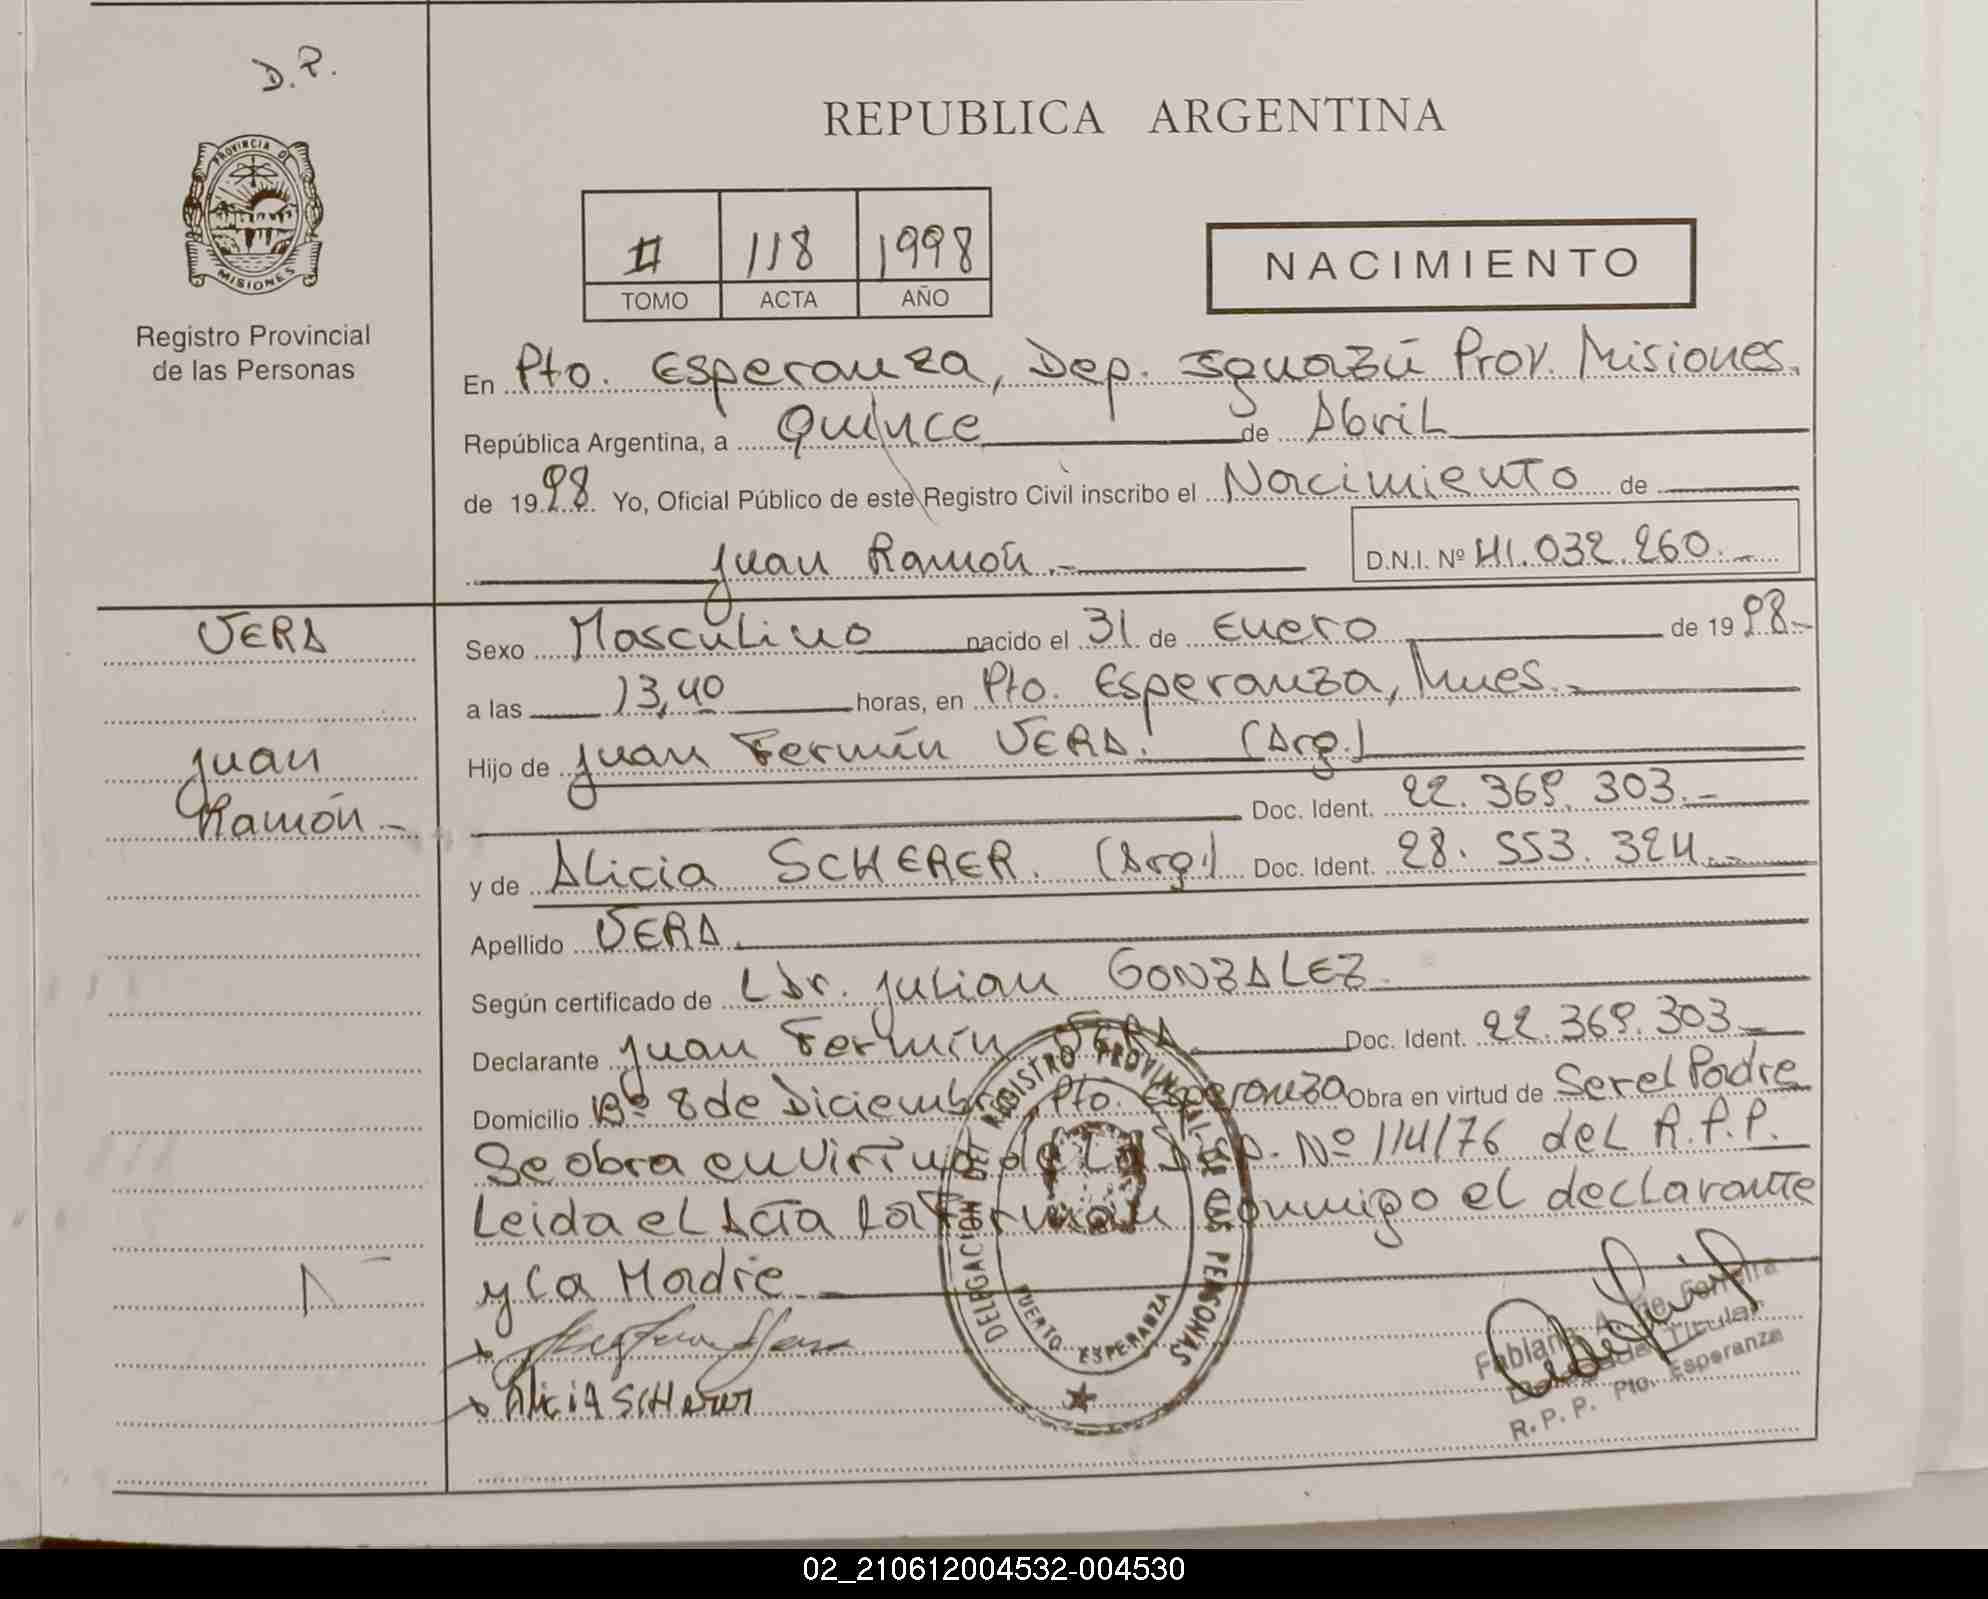 D.P.
PROVINCIA DE
MISIONES
Registro Provincial
de las Personas
REPUBLICA ARGENTINA
II 118 1998
TOMO ACTA AÑO
NACIMIENTO
En Pto. Esperanza, Dep. Iguazú Prov. Misiones.
República Argentina, a Quince de Abril
de 1998. Yo, Oficial Público de este Registro Civil inscribo el Nacimiento de
Juan Ramón.- D.N.I. Nº 41.032.260.-
VERA
Sexo Masculino nacido el 31 de Enero de 1998.-
a las 13,40 horas, en Pto. Esperanza, Mnes.-
Juan
Hijo de Juan Fermín VERA. (Arg.)
Ramón.-
Doc. Ident. 22.369.303.-
y de Alicia SCHERER. (Arg.) Doc. Ident. 28.553.324.-
Apellido VERA.
Según certificado de L Dr. Julian GONZALEZ.
Declarante Juan Fermín VERA. Doc. Ident. 22.369.303.-
Domicilio Bº 8 de Diciembre, Pto. Esperanza Obra en virtud de Ser el Padre
Se obra en virtud de La Disp. Nº 114/76 del R.P.P.
Leida el Acta La Firman Conmigo el declarante
y La Madre
Alicia SCHerer
DELEGACION DEL REGISTRO PROVINCIAL DE LAS PERSONAS
PUERTO ESPERANZA
Fabiana A. de Ferreira
Delegada Titular
R.P.P. Pto. Esperanza
02_210612004532-004530